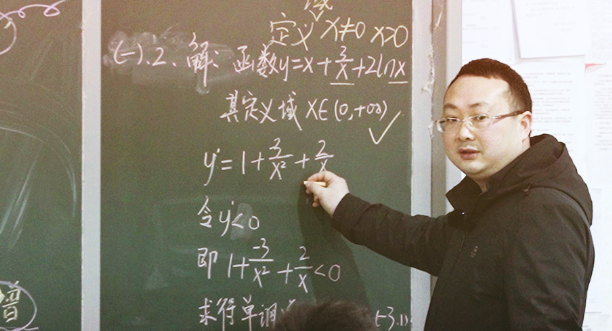 定义 x≠0 x>0
(一).2. 解: 函数y=x+3/x+2lnx
其定义域 x∈(0,+∞)
y'=1+3/x²+2/x
令y'<0
即 1+-3/x²+2/x<0
求得单调
-3,1)